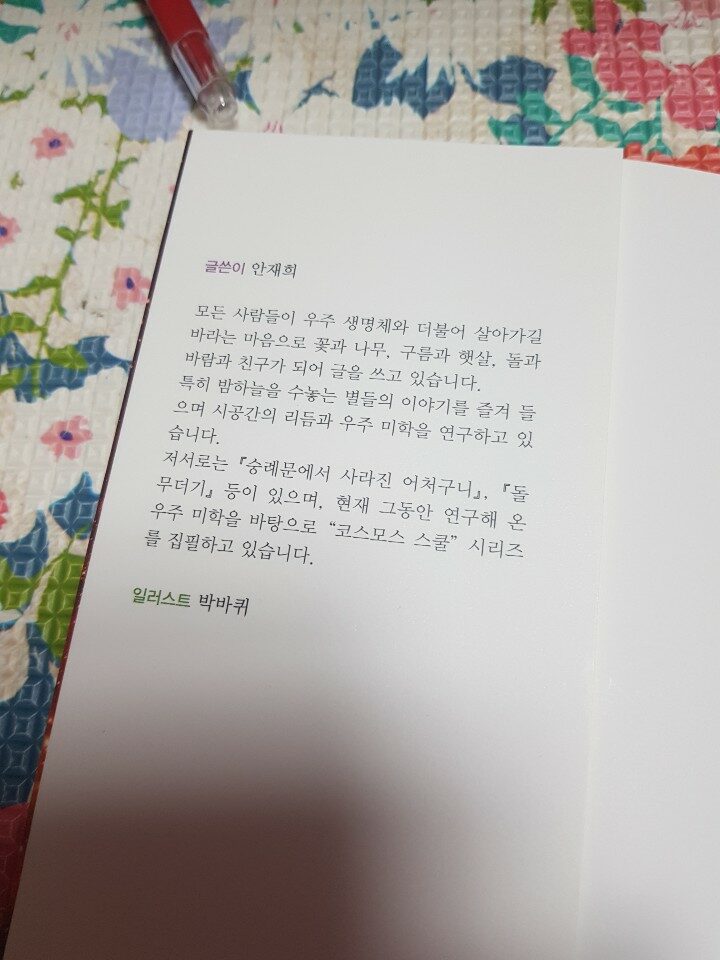 글쓴이 안재희
모든 사람들이 우주 생명체와 더불어 살아가길
바라는 마음으로 꽃과 나무, 구름과 햇살, 돌과
바람과 친구가 되어 글을 쓰고 있습니다.
특히 밤하늘을 수놓는 별들의 이야기를 즐겨 들
으며 시공간의 리듬과 우주 미학을 연구하고 있
습니다.
저서로는 『숭례문에서 사라진 어처구니』, 『돌
무더기』 등이 있으며, 현재 그동안 연구해 온
우주 미학을 바탕으로 “코스모스 스쿨” 시리즈
를 집필하고 있습니다.
일러스트 박바퀴